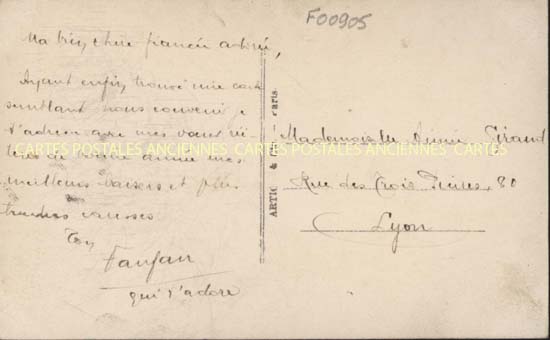 F00905
Ma très chère fiancée adorée,
Ayant enfin trouvé une carte
semblant nous convenir je
t'adresse avec mes vœux
de bonne année mes
meilleurs baisers et plus
tendres caresses
Ton
Fanfan
qui t'adore
ARTIC & Paris.
Mademoiselle Annie Giraud
Rue des Trois Pierres 80
Lyon
CARTES POSTALES ANCIENNES CARTES POSTALES ANCIENNES CARTES